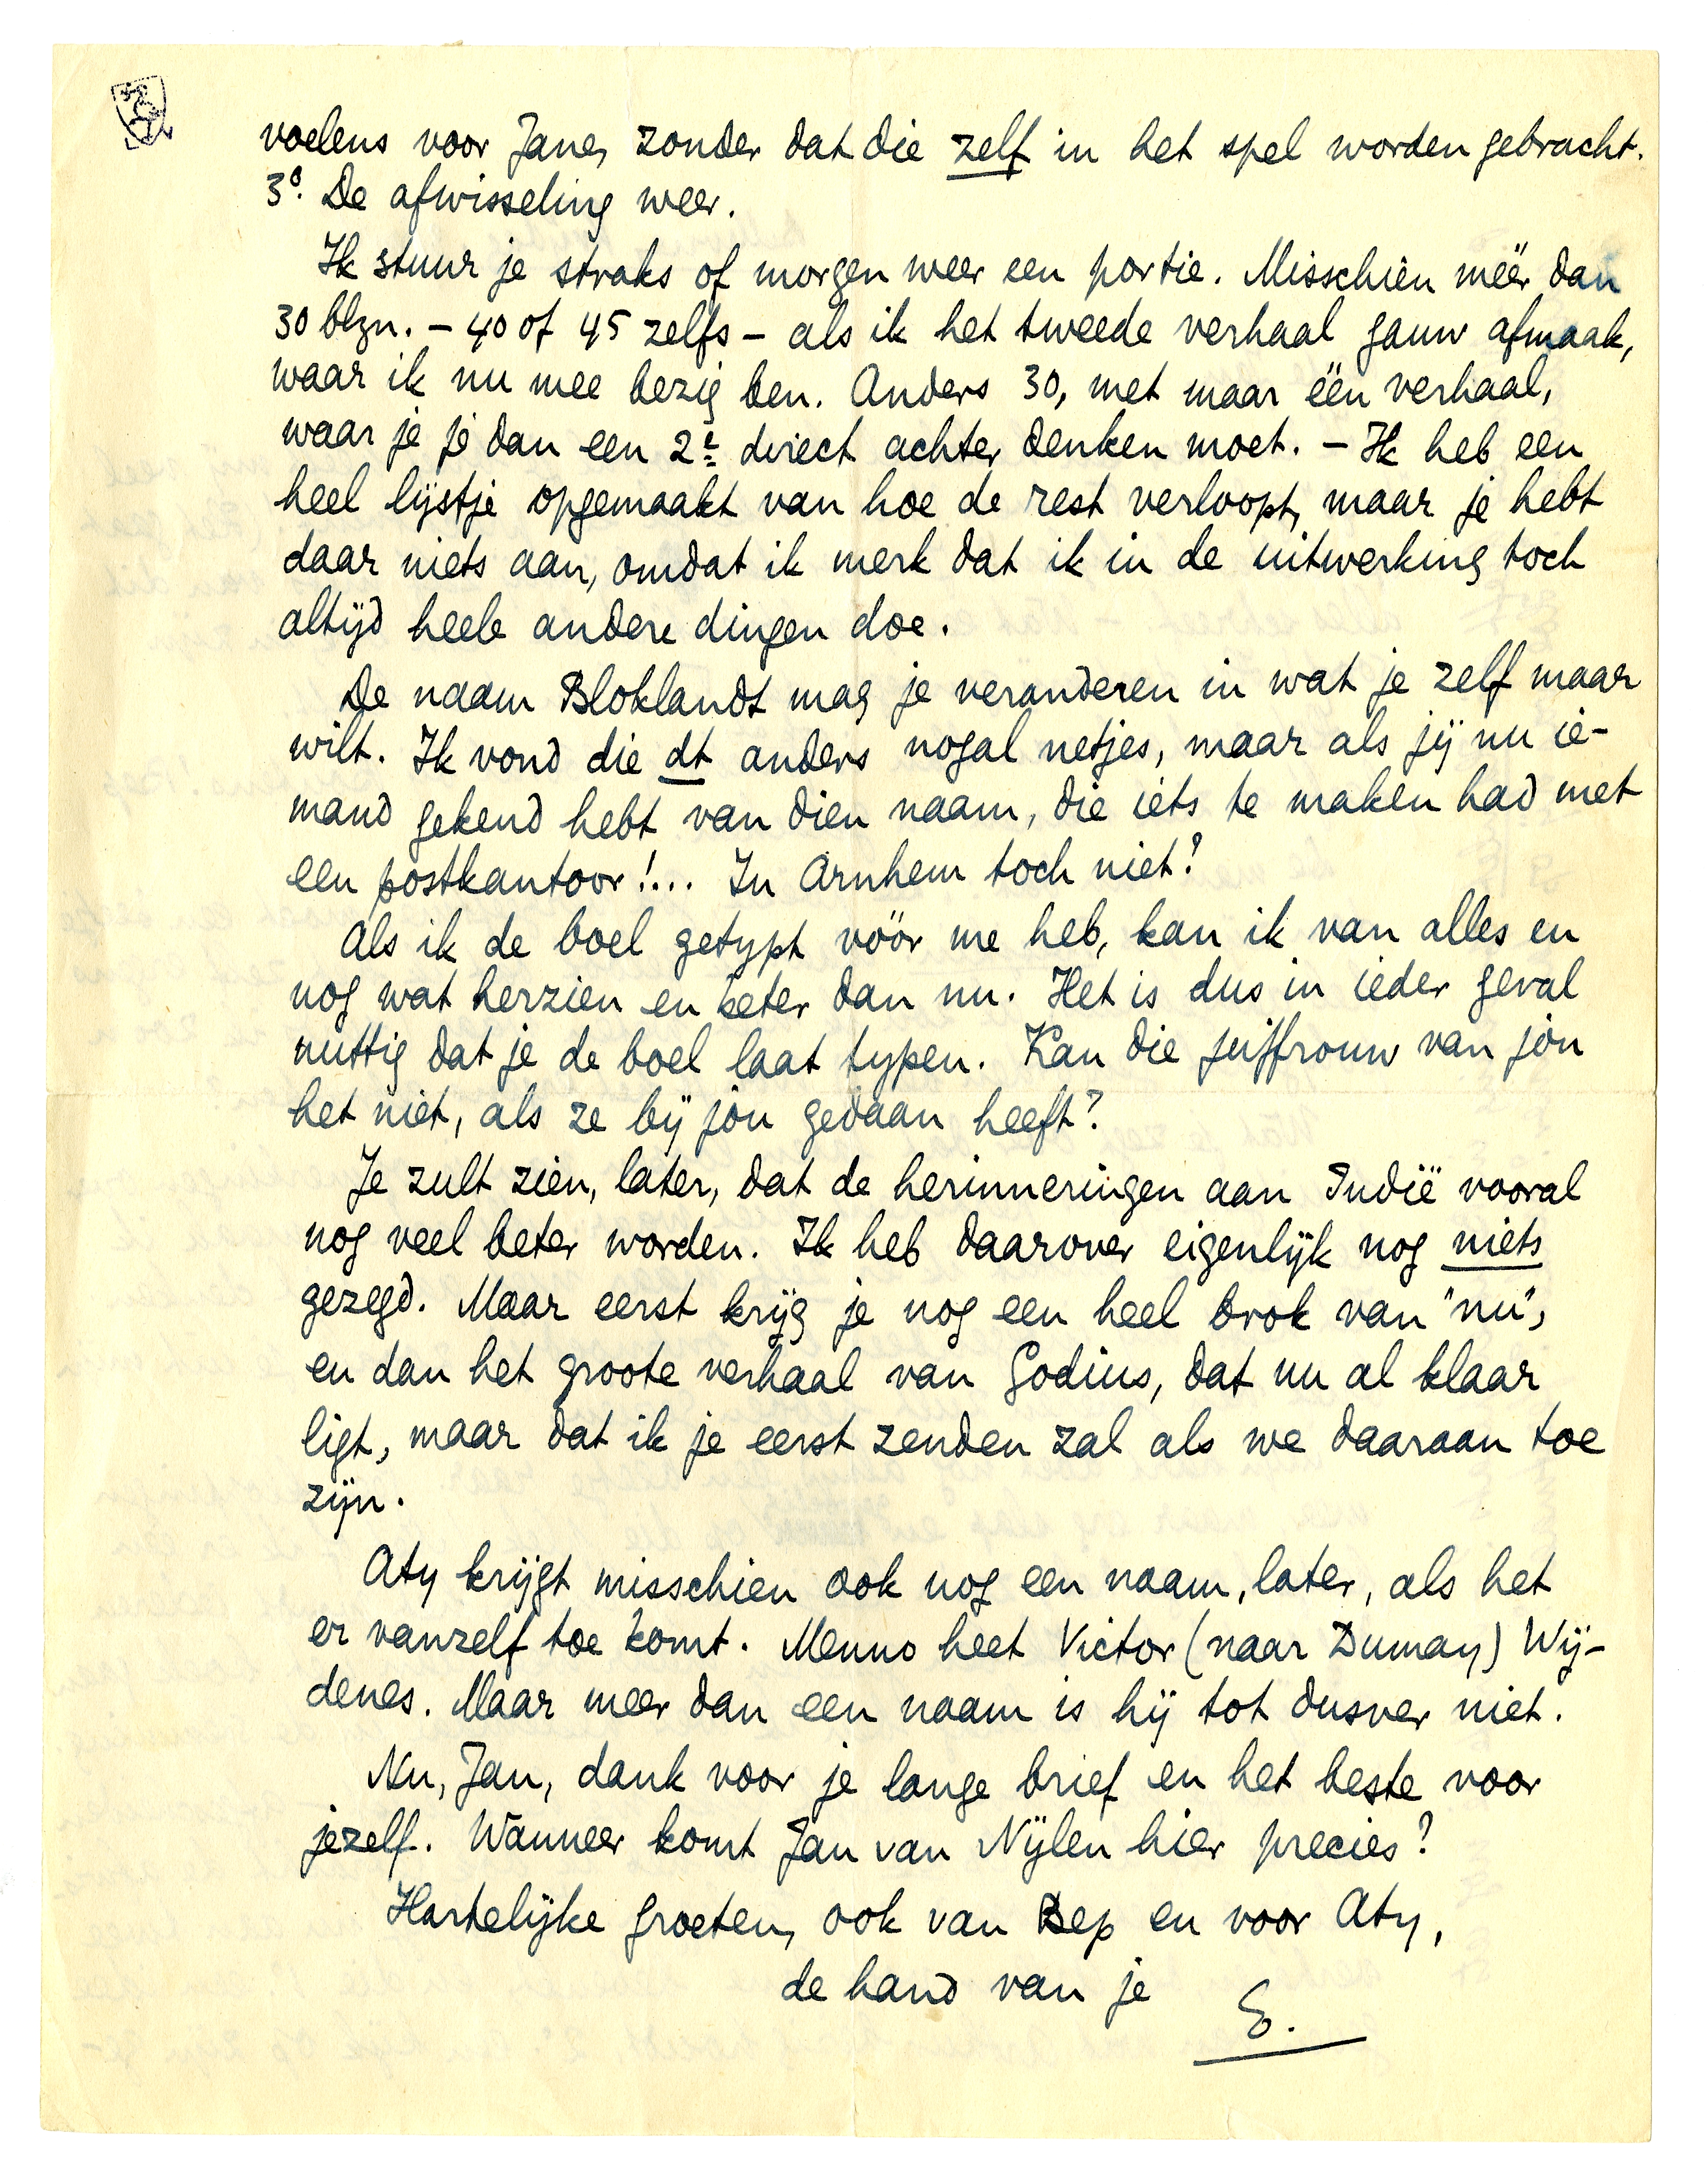 voelens voor Jane, zonder dat die zelf in het spel worden gebracht.
3º. De afwisseling weer.
Ik stuur je straks of morgen weer een portie. Misschien méér dan
30 blzn. – 40 of 45 zelfs – als ik het tweede verhaal gauw afmaak,
waar ik nu mee bezig ben. Anders 30, met maar één verhaal,
waar je je dan een 2e direct achter denken moet. – Ik heb een
heel lijstje opgemaakt van hoe de rest verloopt, maar je hebt
daar niets aan, omdat ik merk dat ik in de uitwerking toch
altijd heele andere dingen doe.
De naam Bloklandt mag je veranderen in wat je zelf maar
wilt. Ik vond die dt anders nogal netjes, maar als jij nu ie-
mand gekend hebt van dien naam, die iets te maken had met
een postkantoor!... In Arnhem toch niet?
Als ik de boel getypt vóór me heb, kan ik van alles en
nog wat herzien en beter dan nu. Het is dus in ieder geval
nuttig dat je de boel laat typen. Kan die juffrouw van jou
het niet, als ze bij jou gedaan heeft?
Je zult zien, later, dat de herinneringen aan Indië vooral
nog veel beter worden. Ik heb daarover eigenlijk nog niets
gezegd. Maar eerst krijg je nog een heel brok van "nu",
en dan het groote verhaal van Godius, dat nu al klaar
ligt, maar dat ik je eerst zenden zal als we daaraan toe
zijn.
Aty krijgt misschien ook nog een naam, later, als het
er vanzelf toe komt. Menno heet Victor (naar Dumay) Wij-
denes. Maar meer dan een naam is hij tot dusver niet.
Nu, Jan, dank voor je lange brief en het beste voor
jezelf. Wanneer komt Jan van Nijlen hier precies?
Hartelijke groeten, ook van Bep en voor Aty,
de hand van je
E.